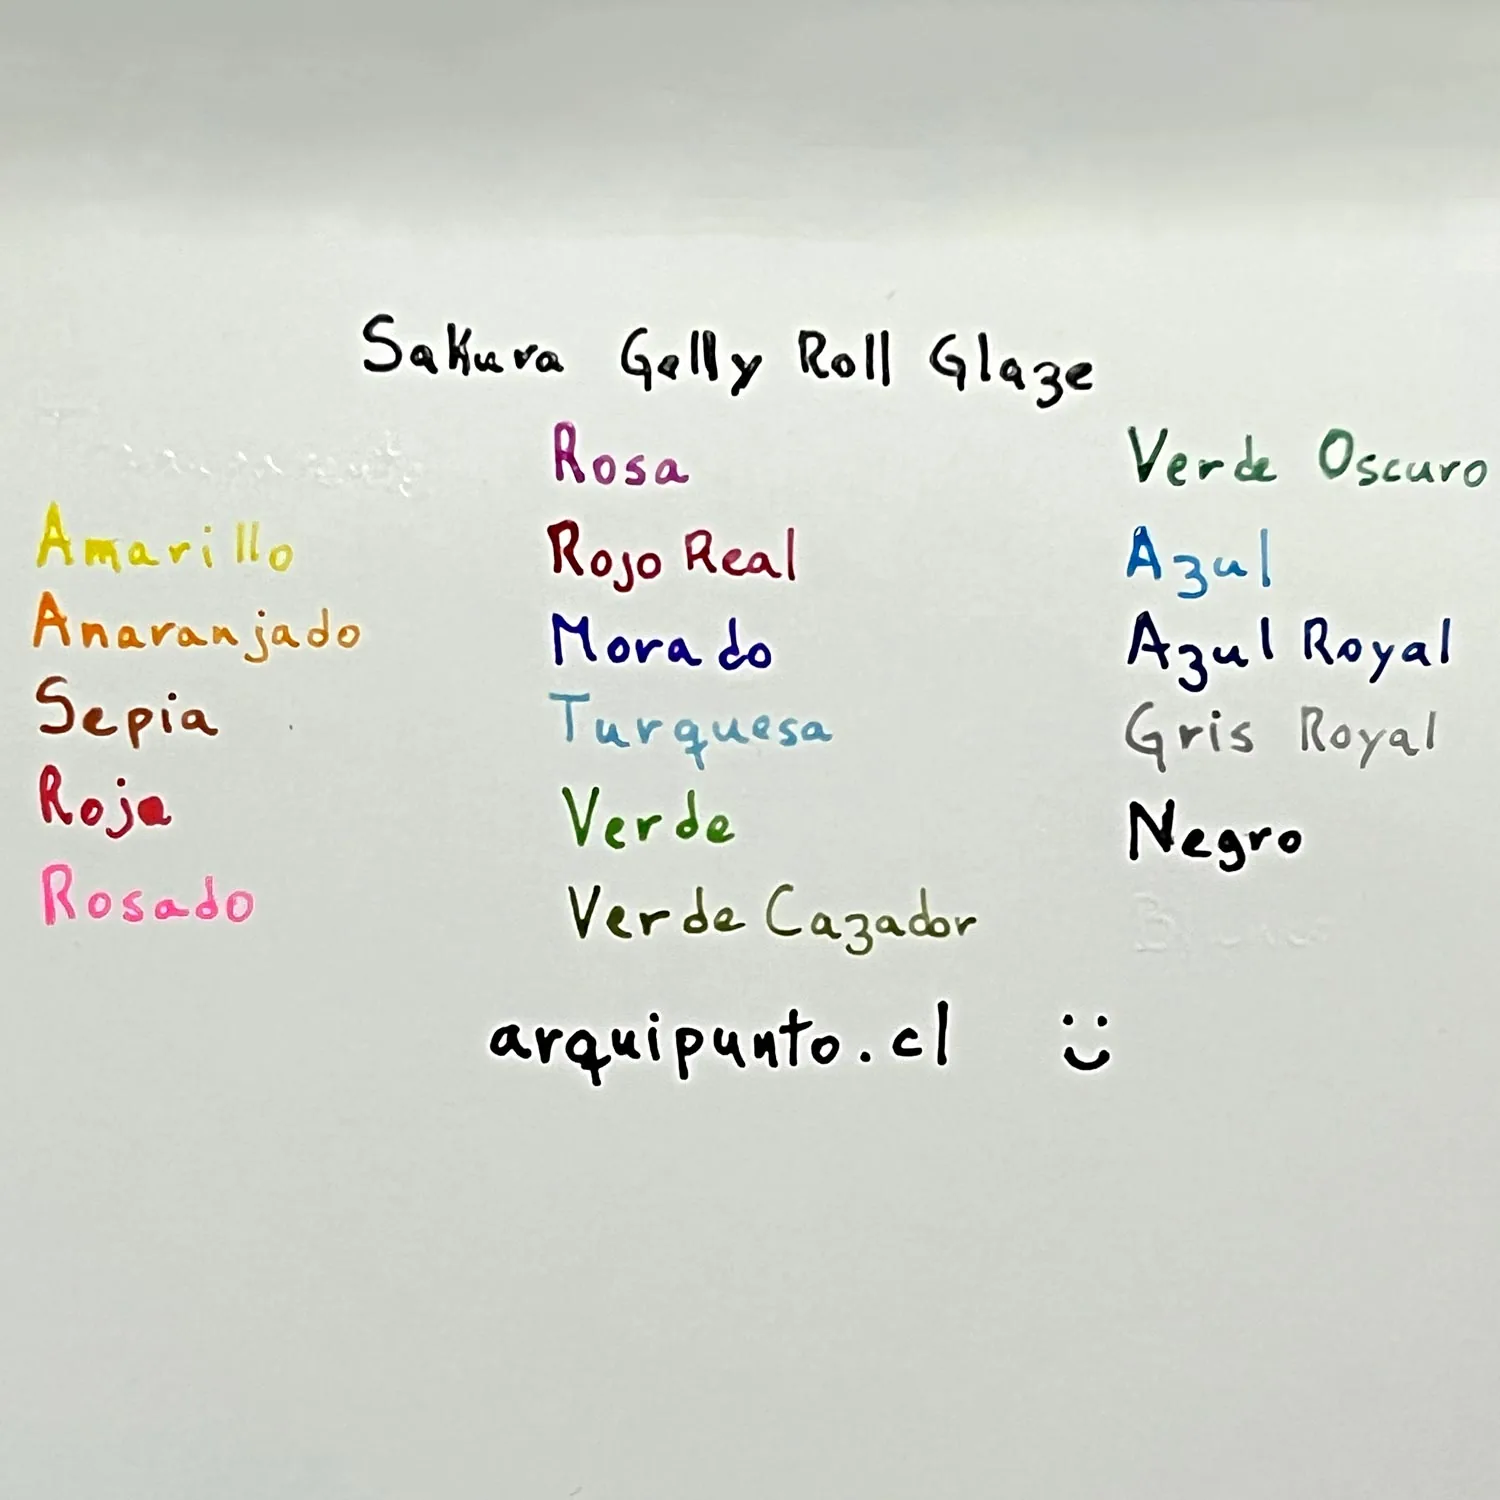 Sakura Gelly Roll Glaze
Amarillo
Anaranjado
Sepia
Roja
Rosado
Rosa
Rojo Real
Morado
Turquesa
Verde
Verde Cazador
Verde Oscuro
Azul
Azul Royal
Gris Royal
Negro
arquipunto.cl